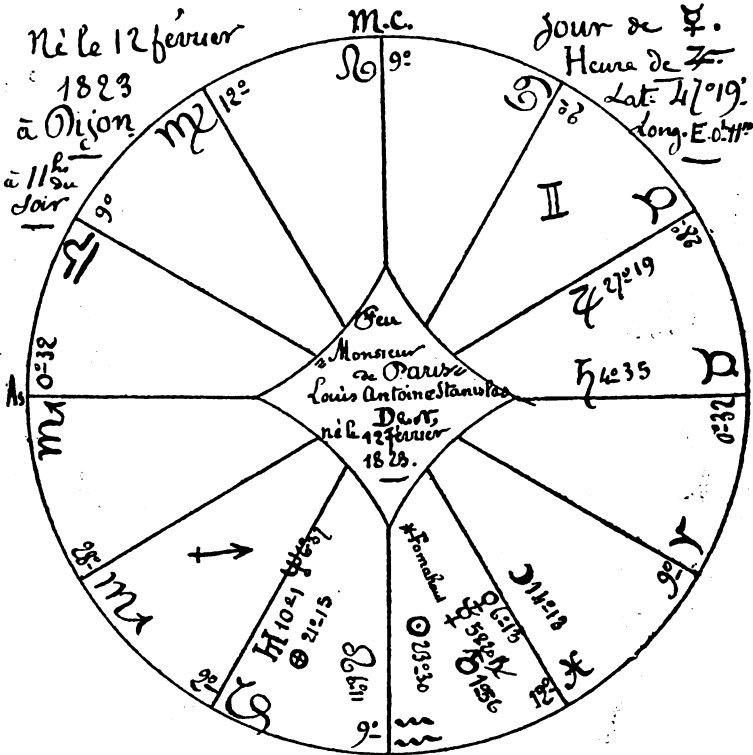 Né le 12 février
1823
à Dijon
à 11h. du
Soir
M.C.
Jour de ☿.
Heure de ♃.
Lat. 47°19'
Long. E. 0h11m
♌ 9°
♍ 12°
♋ 9°
♊
♉ 28°
♎ 9°
♃ 27°19
♄ 4°35
As
♏ 0°32
♉ 0°32
Feu
"Monsieur
de Paris"
Louis Antoine Stanislas
né le
12 février
1823.
♏ 28°
♐
♅ 10 21
⊕ 21°13
♑ 9°
☊
♒ 9°
*Fomahaut
☉ 23°30
♀ 6°13
☿
♂ 1°56
☽ 14°13
♓ 12°
♈ 9°